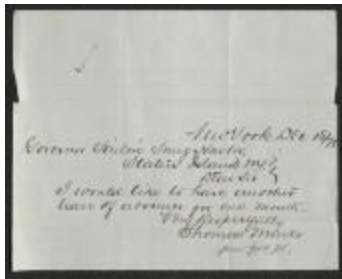 New York Dec 18/78
Governor Sailors' Snug Harbor,
Staten Island N.Y.
Dear Sir
I would like to have another
leave of absence for one month.
Very Respectfully
Thomas